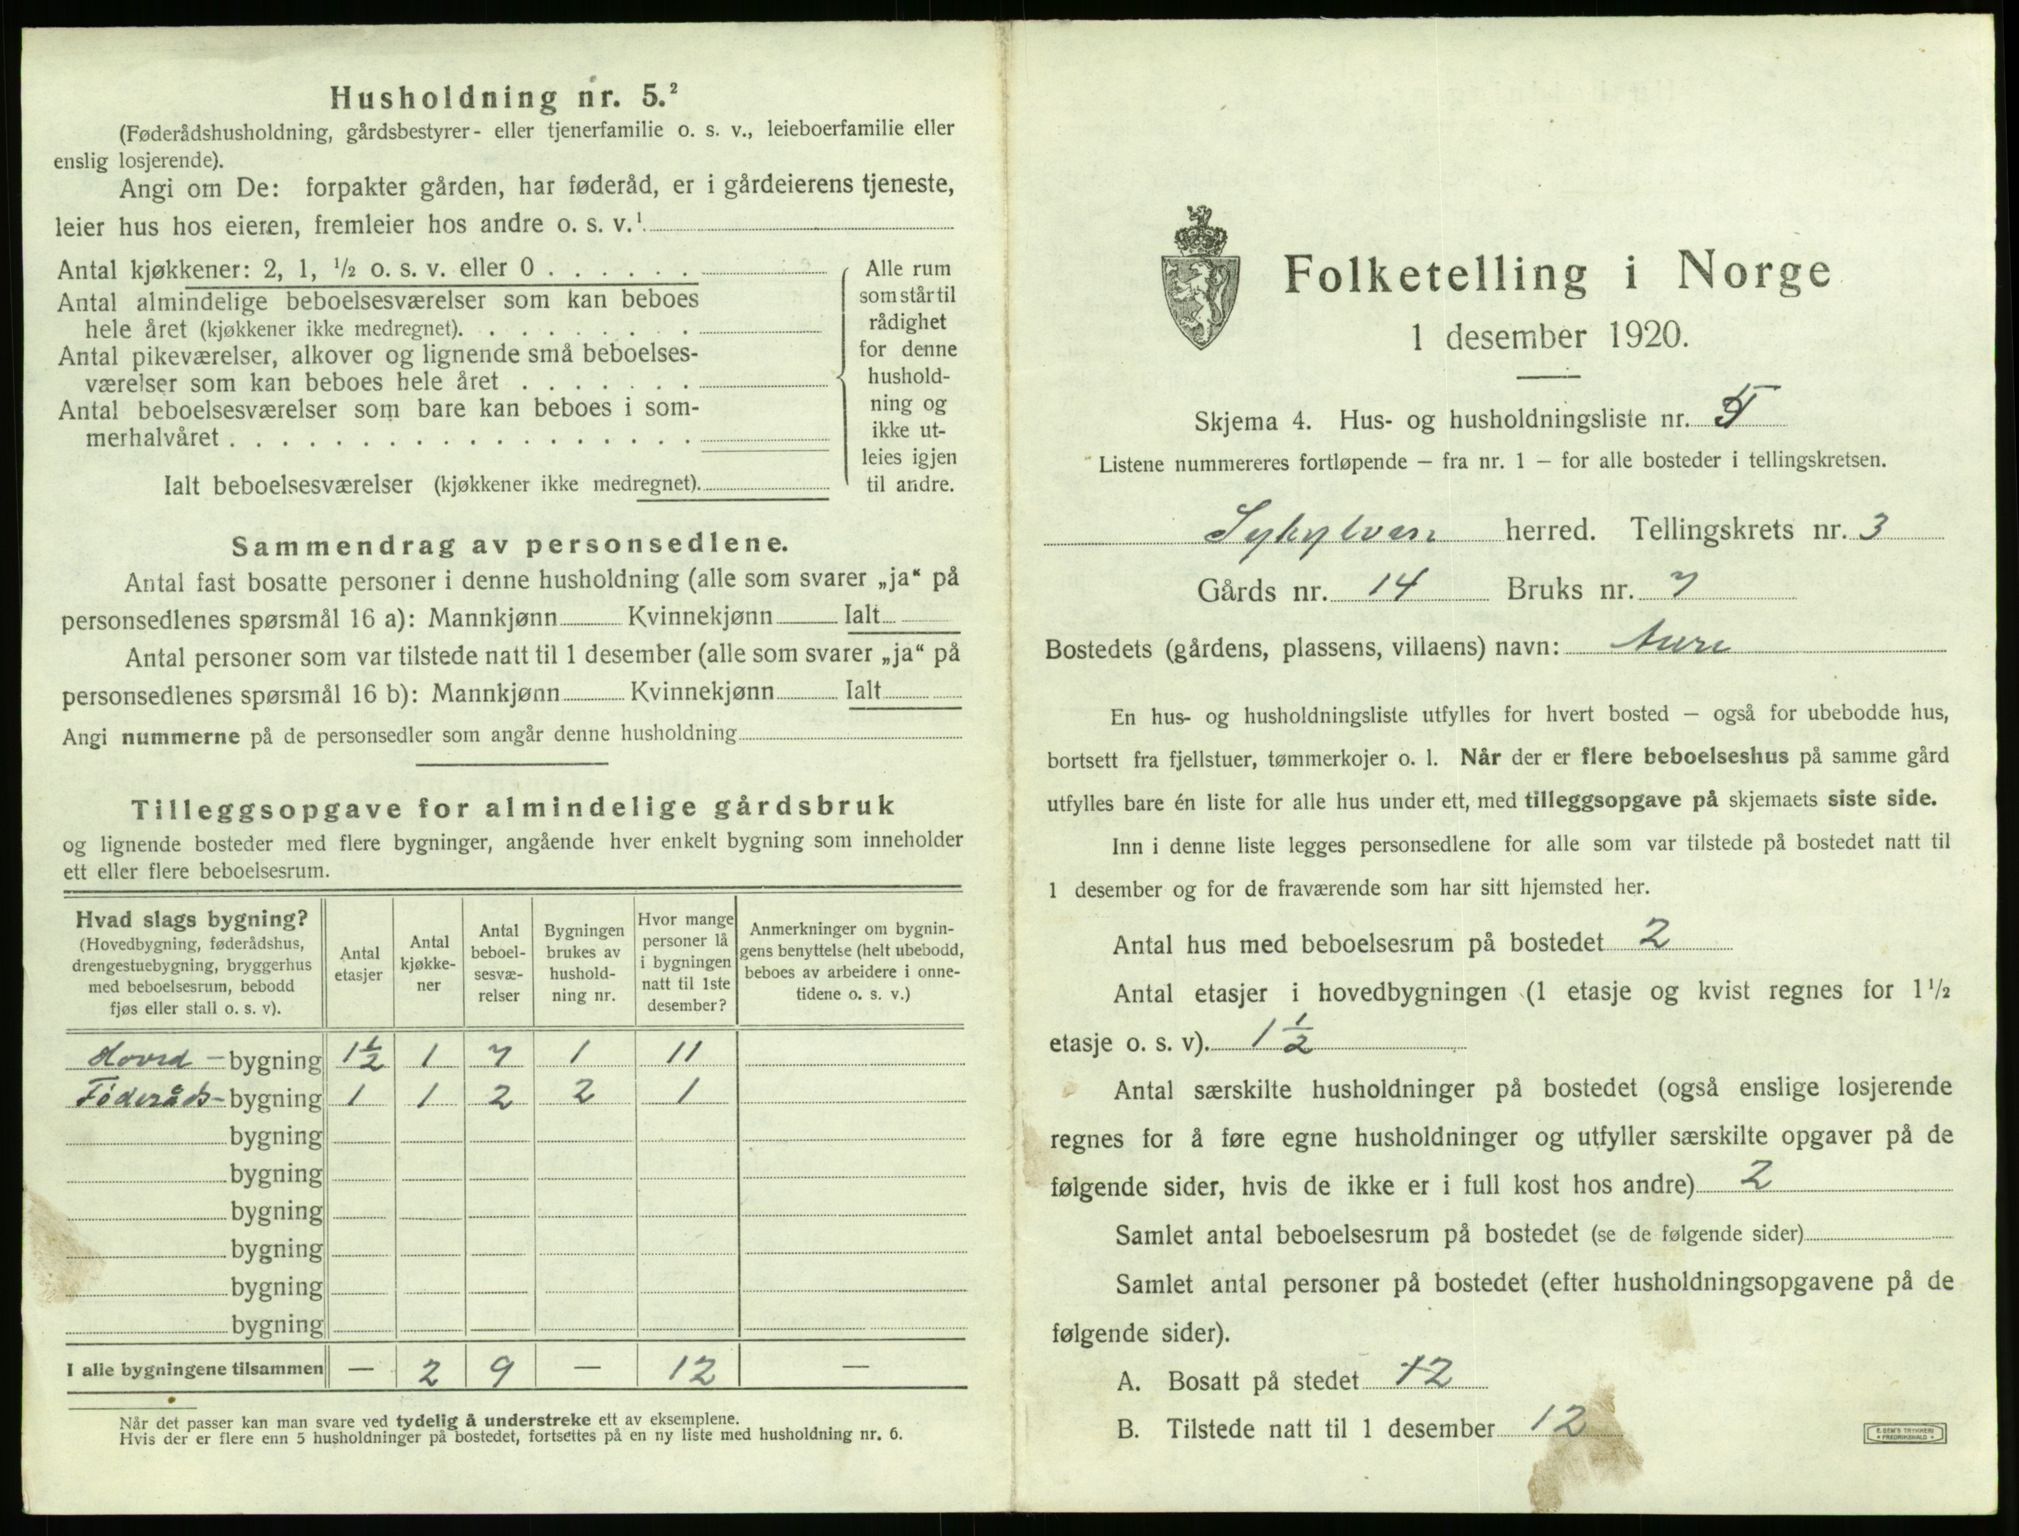 Husholdning nr. 5.²
(Føderådshusholdning, gårdsbestyrer- eller tjenerfamilie o. s. v., leieboerfamilie eller
enslig losjerende).
Angi om De: forpakter gården, har føderåd, er i gårdeierens tjeneste,
leier hus hos eieren, fremleier hos andre o. s. v.¹
Antal kjøkkener: 2, 1, ½ o. s. v. eller 0 . . . . . .
Antal almindelige beboelsesværelser som kan beboes
hele året (kjøkkener ikke medregnet). . . . . . . . .
Antal pikeværelser, alkover og lignende små beboelses-
værelser som kan beboes hele året . . . . . . .
Antal beboelsesværelser som bare kan beboes i som-
merhalvåret . . . . . . . . . . . . . . . . . .
Ialt beboelsesværelser (kjøkkener ikke medregnet).
Alle rum
som står til
rådighet
for denne
hushold-
ning og
ikke ut-
leies igjen
til andre.
Sammendrag av personsedlene.
Antal fast bosatte personer i denne husholdning (alle som svarer „ja“ på
personsedlenes spørsmål 16 a): Mannkjønn Kvinnekjønn Ialt
Antal personer som var tilstede natt til 1 desember (alle som svarer „ja“ på
personsedlenes spørsmål 16 b): Mannkjønn Kvinnekjønn Ialt
Angi nummerne på de personsedler som angår denne husholdning
Tilleggsopgave for almindelige gårdsbruk
og lignende bosteder med flere bygninger, angående hver enkelt bygning som inneholder
ett eller flere beboelsesrum.
Hvad slags bygning?
(Hovedbygning, føderådshus,
drengestuebygning, bryggerhus
med beboelsesrum, bebodd
fjøs eller stall o. s. v).
Antal
etasjer
Antal
kjøkke-
ner
Antal
beboel-
sesvæ-
relser
Bygningen
brukes av
hushold-
ning nr.
Hvor mange
personer lå
i bygningen
natt til 1ste
desember?
Anmerkninger om bygnin-
gens benyttelse (helt ubebodd,
beboes av arbeidere i onne-
tidene o. s. v.)
Hoved-bygning 1½ 1 7 1 11
Føderåds-bygning 1 1 2 2 1
bygning
bygning
bygning
bygning
bygning
bygning
I alle bygningene tilsammen — 2 9 — 12 —
Når det passer kan man svare ved tydelig å understreke ett av eksemplene.
Hvis der er flere enn 5 husholdninger på bostedet, fortsettes på en ny liste med husholdning nr. 6.
Folketelling i Norge
1 desember 1920.
Skjema 4. Hus- og husholdningsliste nr.
Listene nummereres fortløpende — fra nr. 1 — for alle bosteder i tellingskretsen.
Sykylven herred. Tellingskrets nr. 3
Gårds nr. 14 Bruks nr. 7
Bostedets (gårdens, plassens, villaens) navn: Aure
En hus- og husholdningsliste utfylles for hvert bosted — også for ubebodde hus,
bortsett fra fjellstuer, tømmerkojer o. l. Når der er flere beboelseshus på samme gård
utfylles bare én liste for alle hus under ett, med tilleggsopgave på skjemaets siste side.
Inn i denne liste legges personsedlene for alle som var tilstede på bostedet natt til
1 desember og for de fraværende som har sitt hjemsted her.
Antal hus med beboelsesrum på bostedet 2
Antal etasjer i hovedbygningen (1 etasje og kvist regnes for 1½
etasje o. s. v). 1½
Antal særskilte husholdninger på bostedet (også enslige losjerende
regnes for å føre egne husholdninger og utfyller særskilte opgaver på de
følgende sider, hvis de ikke er i full kost hos andre) 2
Samlet antal beboelsesrum på bostedet (se de følgende sider)
Samlet antal personer på bostedet (efter husholdningsopgavene på de
følgende sider).
A. Bosatt på stedet 12
B. Tilstede natt til 1 desember 12
E. SEM'S TRYKKERI
FREDRIKSHALD